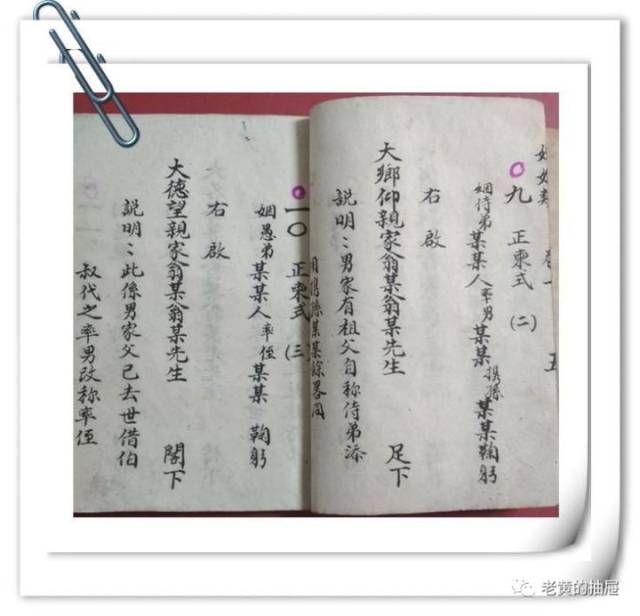 九 正柬式 (二)
姻侍弟某某人率男某某携孫某某鞠躬
右啟
大鄉仰親家翁某翁某先生 足下
説明:男家有祖父自称侍弟添
用携孫某某餘畧同
一〇 正柬式 (三)
姻愚弟某某人率侄某某 鞠躬
右啟
大德望親家翁某翁某先生 閣下
説明:此係男家父已去世借伯
叔代之率男改称率侄
老黄的抽屉